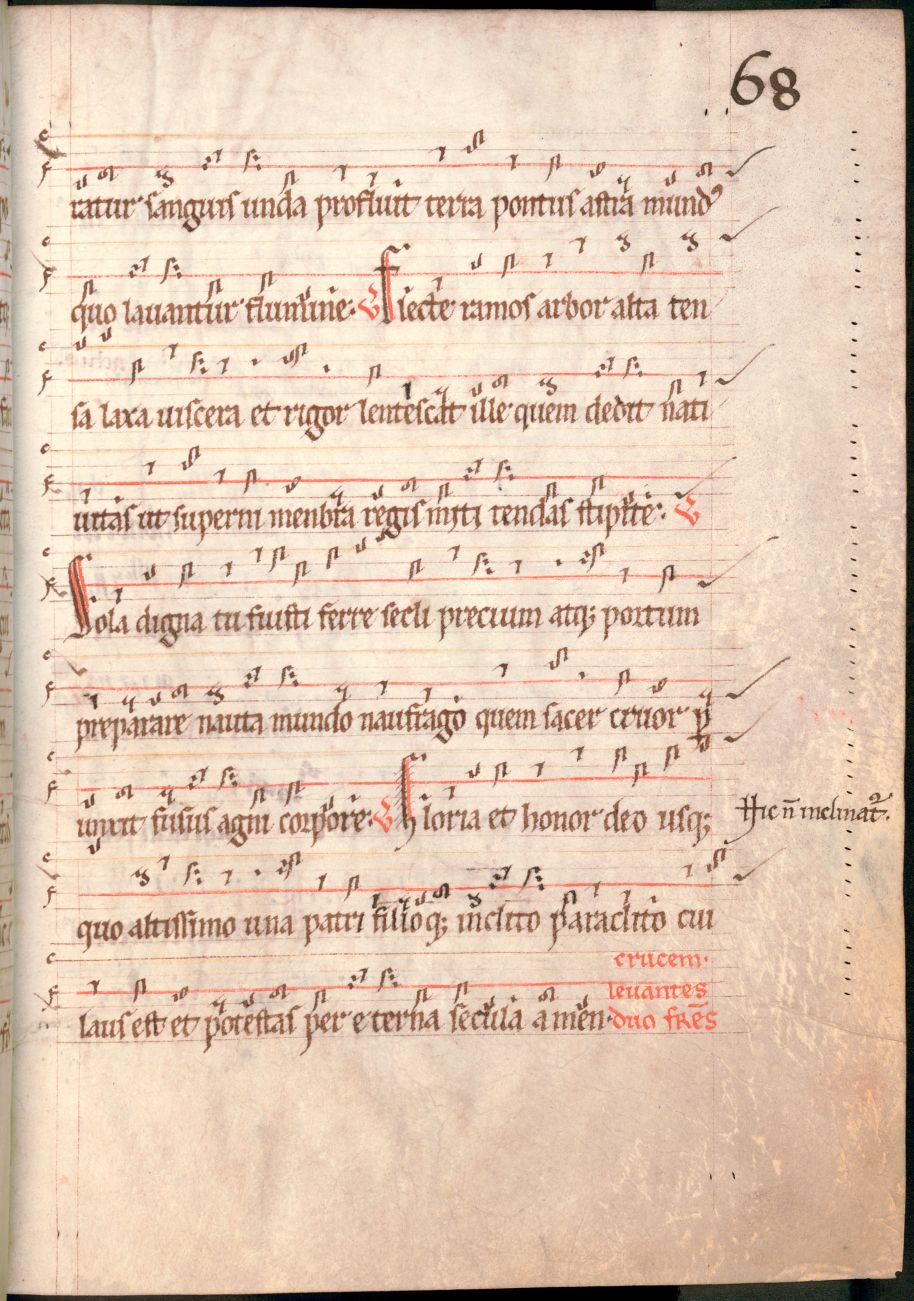 68
ratur sanguis unda profluit terra pontus astra mundꝰ
quo lauantur flumine. V Flecte ramos arbor alta ten
sa laxa uiscera et rigor lentescat ille quem dedit nati
uitas ut superni menbra regis miti tendas stipite. V
Sola digna tu fuisti ferre secli precium atq; portum
preparare nauta mundo naufrago quem sacer cruor ꝑ
unxit fusus agni corpore. V Gloria et honor deo usq;
Hic n̄ inclinat᷑.
quo altissimo una patri filioq; inclito paraclito cui
crucem.
leuantes
laus est et potestas per eterna secula amen. duo fr̄es